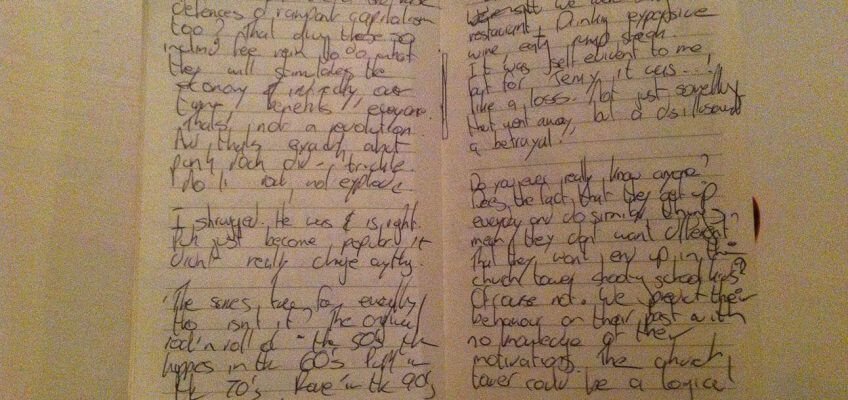 defences of rampant capitalism
too? That allowing these so
rein to do what
they will stimulates the
economy & indirectly over
time benefits everyone.
That's not a revolution.
And that's exactly what
punk rock did - trickle.
not explode.
I shrugged. He was & is right.
Punk just become popular it
didn't really change anything.
The same's true for everything
tho isn't it. The original
rock'n roll of the 50's, the
hippies in the 60's Punk in
the 70's, Rave in the 90's
we
restaurant, Drinking expensive
wine, eating rump steak.
It was self evident to me
but for Jenny it was...
like a loss. Not just something
that went away, but a disillusioned
a betrayal.
Do you ever really know anyone?
Does the fact that they get up
everyday and do similar things
mean they don't want different.
That they won't end up in the
church tower shooting school kids?
Of course not. We predict their
behaviour on their past with
no knowledge of their
motivations. The church
tower could be a logical